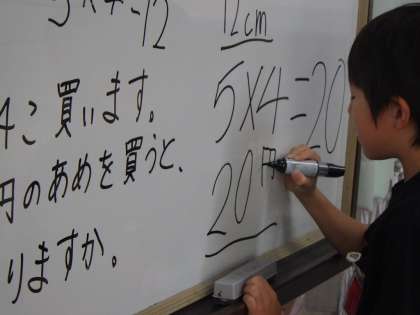 12cm
4こ買います。
円のあめを買うと、
りますか。
5×4=20
20円